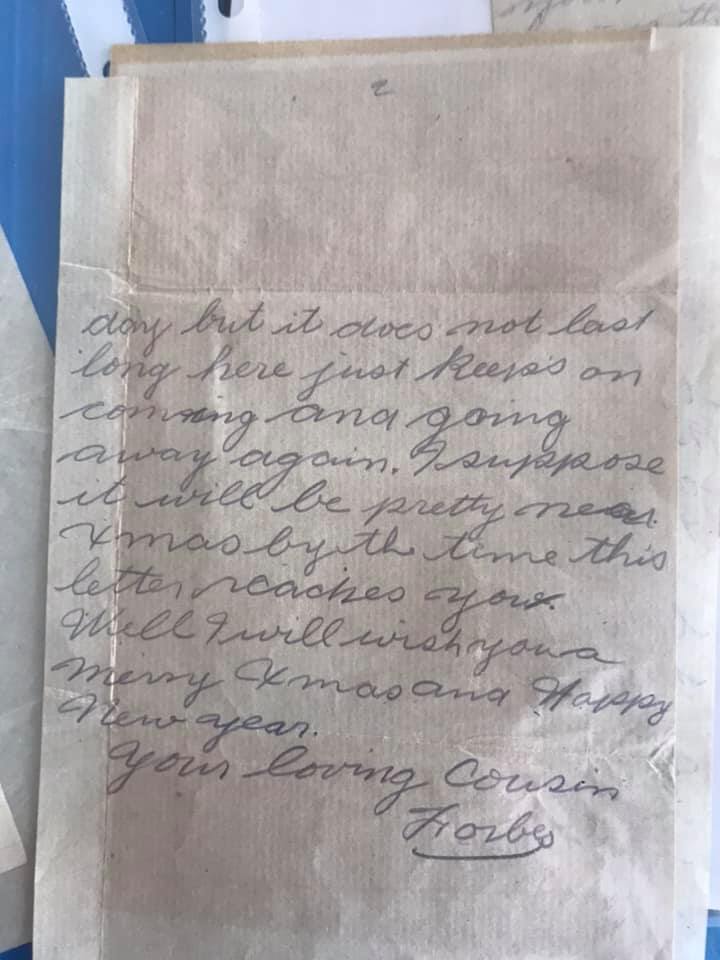 2
day but it does not last
long here just keeps on
coming and going
away again. I suppose
it will be pretty near
Xmas by the time this
letter reaches you.
Well I will wish you a
Merry Xmas and Happy
New year.
Your loving Cousin
Forbes